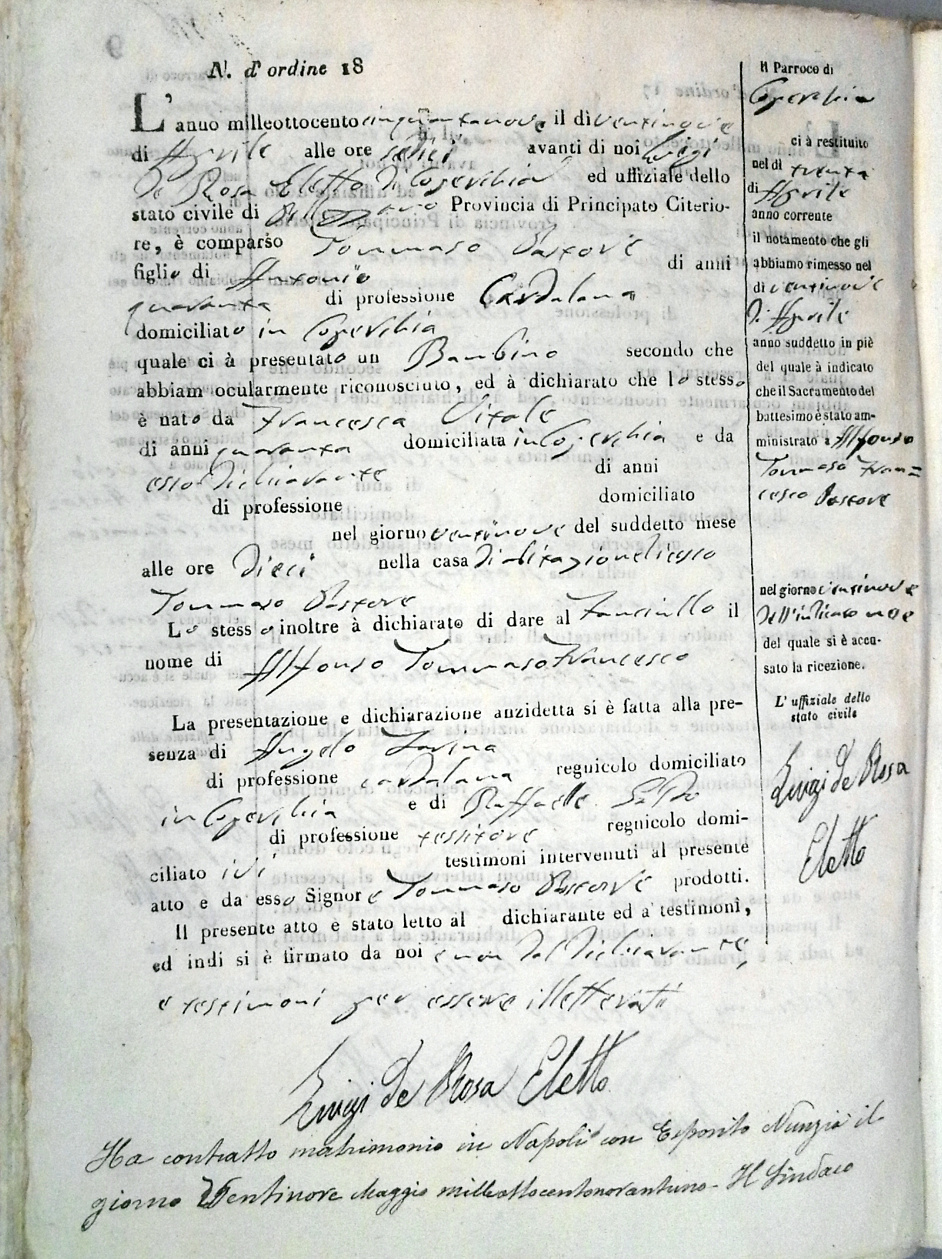 N. d'ordine 18
L'anno milleottocento cinquantanove il dì ventinove
di Aprile alle ore sedici avanti di noi Luigi
De Rosa Eletto di Coperchia ed uffiziale dello
stato civile di Provincia di Principato Citerio-
re, è comparso Tommaso Pastore
figlio di Antonio di anni
quaranta di professione Cardalana
domiciliato in Coperchia
quale ci à presentato un Bambino secondo che
abbiam ocularmente riconosciuto, ed à dichiarato che lo stesso
è nato da Francesca Vitale
di anni quaranta domiciliata in Coperchia e da
esso Dichiarante di anni
di professione domiciliato
nel giorno ventinove del suddetto mese
alle ore Dieci nella casa di abitazione di esso
Tommaso Pastore
Lo stesso inoltre à dichiarato di dare al Fanciullo il
nome di Alfonso Tommaso Francesco
La presentazione e dichiarazione anzidetta si è fatta alla pre-
senza di Angelo
di professione cardalana regnicolo domiciliato
in Coperchia e di Raffaele
di professione tessitore regnicolo domi-
ciliato ivi testimoni intervenuti al presente
atto e da esso Signore Tommaso Pastore prodotti.
Il presente atto è stato letto al dichiarante ed a' testimoni,
ed indi si è firmato da noi e non dal dichiarante,
e testimoni per essere illetterati
Luigi de Rosa Eletto
Ha contratto matrimonio in Napoli con Esposito Nunzia il
giorno Ventinove Maggio milleottocentonovantuno - Il Sindaco
Il Parroco di
Coperchia
ci à restituito
nel dì trenta
di Aprile
anno corrente
il notamento che gli
abbiamo rimesso nel
dì ventinove
di Aprile
anno suddetto in piè
del quale à indicato
che il Sacramento del
battesimo è stato am-
ministrato a Alfonso
Tommaso Fran=
cesco Pastore
nel giorno ventinove
dell'indicato mese
del quale si è accu-
sato la ricezione.
L'uffiziale dello
stato civile
Luigi de Rosa
Eletto